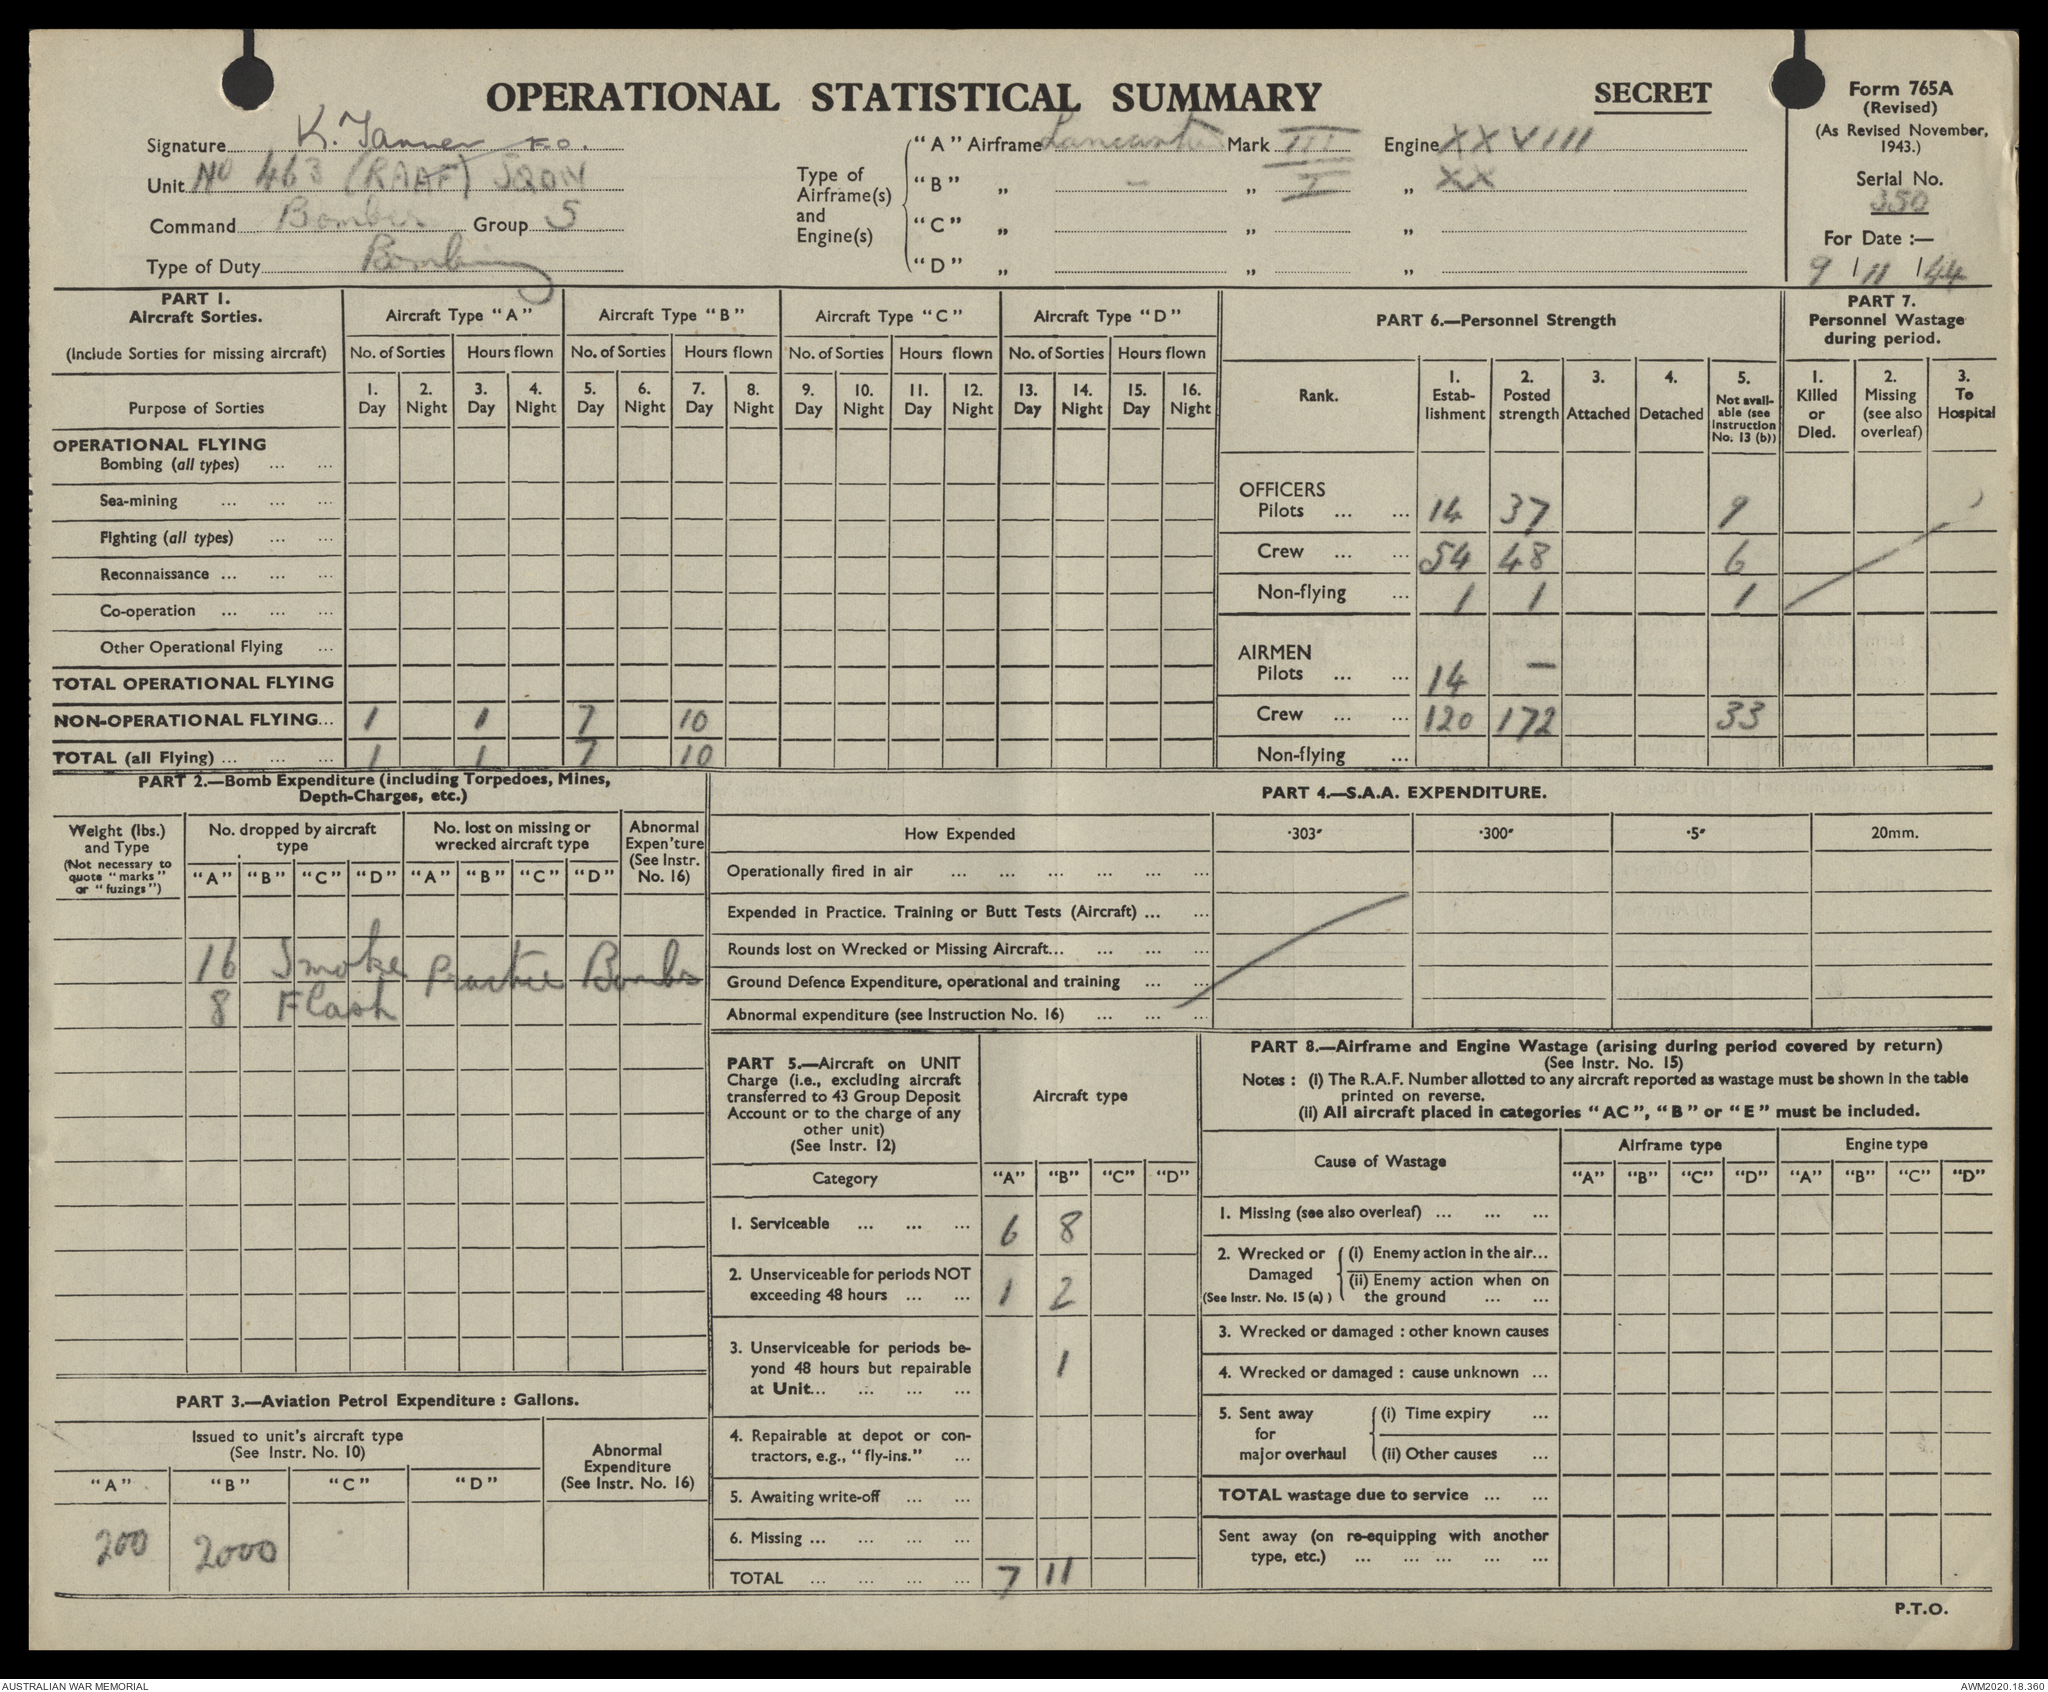 OPERATIONAL STATISTICAL SUMMARY SECRET
Form 765A
(Revised)
(As Revised November,
1943.)
Serial No.
350
For Date :—
9 / 11 / 44
Signature K. Tanner F.O.
Unit No 463 (RAAF) SQDN
Command Bomber Group 5
Type of Duty Bombing
Type of
Airframe(s)
and
Engine(s)
"A" Airframe Lancaster Mark III Engine XXVIII
"B" „ — „ I „ XX
"C" „ „ „
"D" „ „ „
PART 1.
Aircraft Sorties.
(Include Sorties for missing aircraft)
Aircraft Type "A" Aircraft Type "B" Aircraft Type "C" Aircraft Type "D"
No. of Sorties Hours flown No. of Sorties Hours flown No. of Sorties Hours flown No. of Sorties Hours flown
Purpose of Sorties
1. 2. 3. 4. 5. 6. 7. 8. 9. 10. 11. 12. 13. 14. 15. 16.
Day Night Day Night Day Night Day Night Day Night Day Night Day Night Day Night
OPERATIONAL FLYING
Bombing (all types) ... ...
Sea-mining ... ... ...
Fighting (all types) ... ...
Reconnaissance ... ... ...
Co-operation ... ... ...
Other Operational Flying ...
TOTAL OPERATIONAL FLYING
NON-OPERATIONAL FLYING... 1 1 7 10
TOTAL (all Flying) ... ... ... 1 1 7 10
PART 6.—Personnel Strength
Rank.
1. Estab-lishment
2. Posted strength
3. Attached
4. Detached
5. Not avail-able (see Instruction No. 13 (b))
OFFICERS
Pilots ... ... 14 37 9
Crew ... ... 54 48 6
Non-flying ... 1 1 1
AIRMEN
Pilots ... ... 14 —
Crew ... ... 120 172 33
Non-flying ...
PART 7.
Personnel Wastage
during period.
1. Killed or Died.
2. Missing (see also overleaf)
3. To Hospital
PART 2.—Bomb Expenditure (including Torpedoes, Mines,
Depth-Charges, etc.)
Weight (lbs.)
and Type
(Not necessary to
quote "marks"
or "fuzings")
No. dropped by aircraft
type
No. lost on missing or
wrecked aircraft type
Abnormal
Expen'ture
(See Instr.
No. 16)
"A" "B" "C" "D" "A" "B" "C" "D"
16 Smoke Practice Bombs
8 Flash
PART 3.—Aviation Petrol Expenditure : Gallons.
Issued to unit's aircraft type
(See Instr. No. 10)
Abnormal
Expenditure
(See Instr. No. 16)
"A" "B" "C" "D"
200 2000
PART 4.—S.A.A. EXPENDITURE.
How Expended ·303″ ·300″ ·5″ 20mm.
Operationally fired in air ... ... ... ... ... ...
Expended in Practice. Training or Butt Tests (Aircraft) ... ...
Rounds lost on Wrecked or Missing Aircraft... ... ... ...
Ground Defence Expenditure, operational and training ... ...
Abnormal expenditure (see Instruction No. 16) ... ... ...
PART 5.—Aircraft on UNIT
Charge (i.e., excluding aircraft
transferred to 43 Group Deposit
Account or to the charge of any
other unit)
(See Instr. 12)
Aircraft type
Category "A" "B" "C" "D"
1. Serviceable ... ... ... 6 8
2. Unserviceable for periods NOT
exceeding 48 hours ... ... 1 2
3. Unserviceable for periods be-
yond 48 hours but repairable
at Unit... ... ... ... 1
4. Repairable at depot or con-
tractors, e.g., "fly-ins." ...
5. Awaiting write-off ... ...
6. Missing ... ... ... ...
TOTAL ... ... ... ... 7 11
PART 8.—Airframe and Engine Wastage (arising during period covered by return)
(See Instr. No. 15)
Notes : (i) The R.A.F. Number allotted to any aircraft reported as wastage must be shown in the table
printed on reverse.
(ii) All aircraft placed in categories "AC", "B" or "E" must be included.
Cause of Wastage
Airframe type Engine type
"A" "B" "C" "D" "A" "B" "C" "D"
1. Missing (see also overleaf) ... ... ...
2. Wrecked or Damaged (See Instr. No. 15 (a) )
(i) Enemy action in the air...
(ii) Enemy action when on
the ground ... ...
3. Wrecked or damaged : other known causes
4. Wrecked or damaged : cause unknown ...
5. Sent away for major overhaul
(i) Time expiry ...
(ii) Other causes ...
TOTAL wastage due to service ... ...
Sent away (on re-equipping with another
type, etc.) ... ... ... ... ...
P.T.O.
AUSTRALIAN WAR MEMORIAL AWM2020.18.360